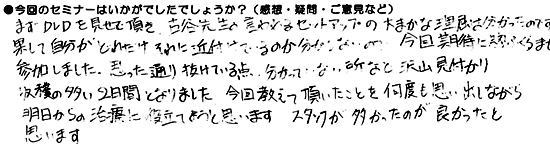 ●今回のセミナーはいかがでしたでしょうか？（感想・疑問・ご意見など）
まずDVDを見せて頂き、古谷先生の言わゆるセットアップの大まかな理屈は分かったのですが
果して自分がどれだけそれに近付けているのか分からないので 今回期待に
参加しました。思った通り抜けている点、分かっていない所など沢山見付かり
収穫の多い2日間となりました 今回教えて頂いたことを何度も思い出しながら
明日からの治療に役立てようと思います スタッフが多かったのが良かったと
思います